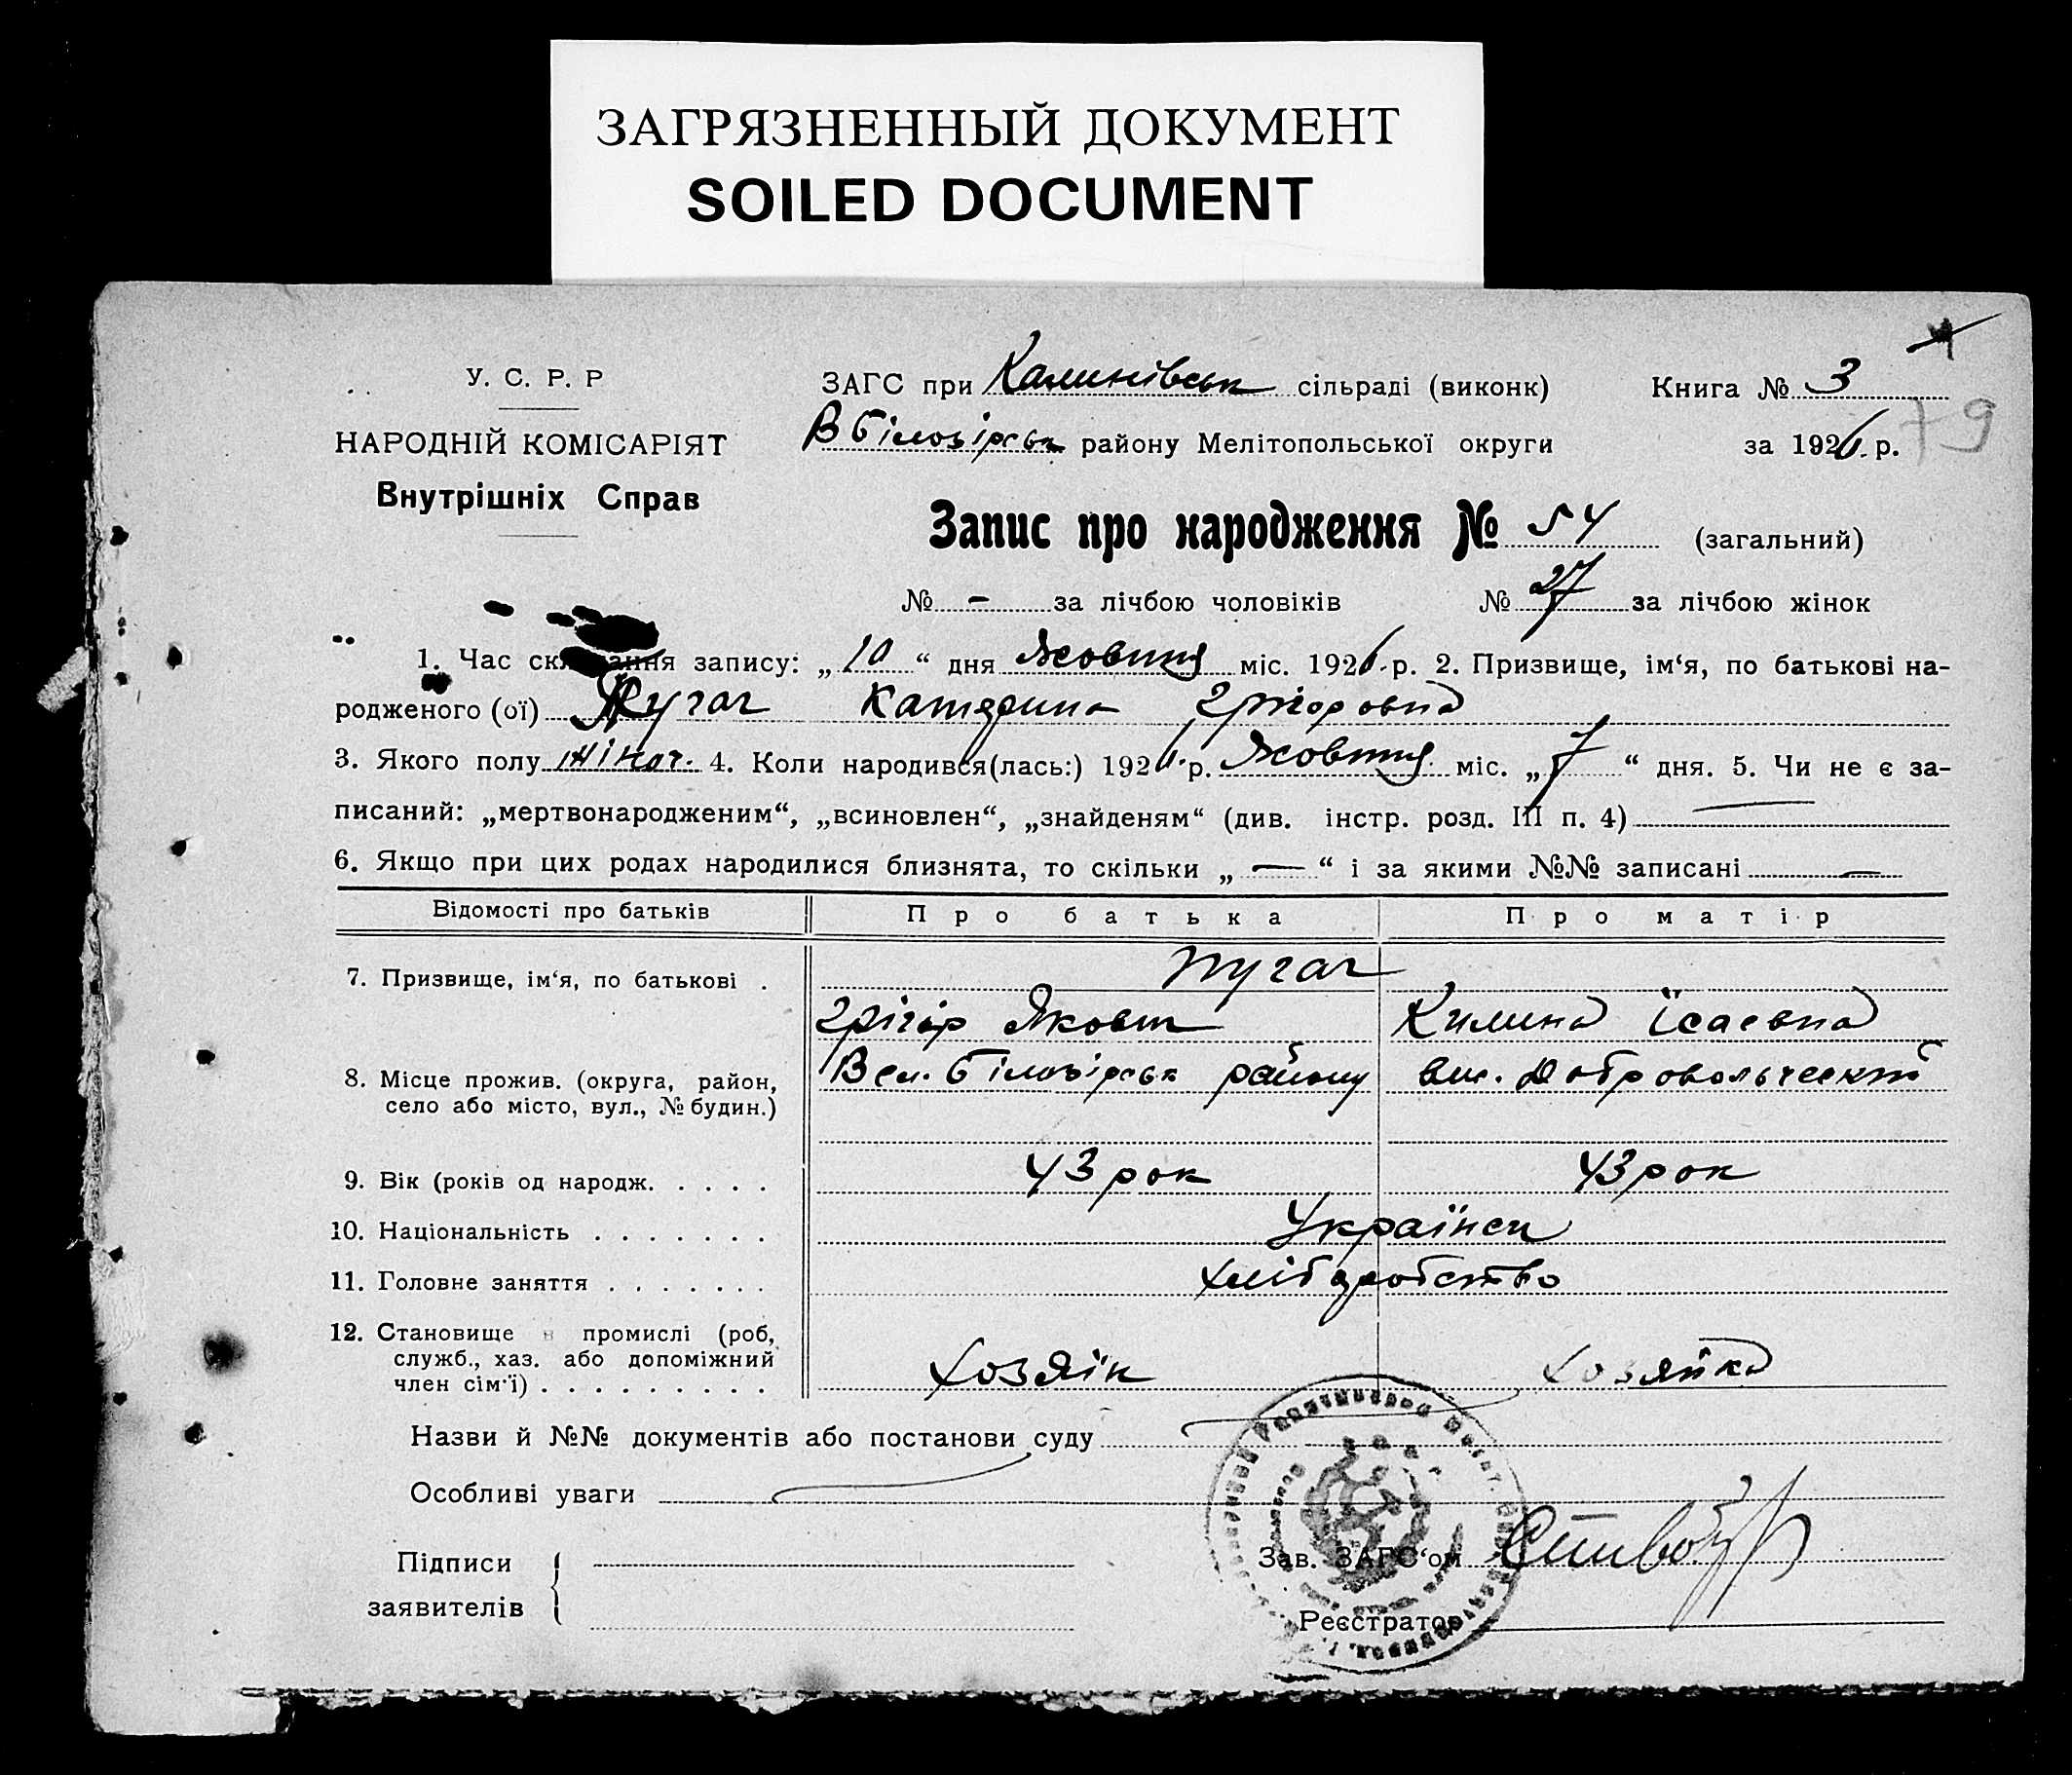 ЗАГРЯЗНЕННЫЙ ДОКУМЕНТ
SOILED DOCUMENT
У. С. Р. Р
НАРОДНІЙ КОМІСАРІЯТ
Внутрішніх Справ
ЗАГС при Калинівськ сільраді (виконк)
В Білозірськ району Мелітопольської округи
Книга № 3
за 1926 р.
79
Запис про народження № 54 (загальний)
№ - за лічбою чоловіків № 27 за лічбою жінок
1. Час складання запису: „10“ дня Жовтня міс. 1926 р. 2. Призвище, ім‘я, по батькові на-
родженого (ої) Пугач Катерина Грігоровна
3. Якого полу жіноч. 4. Коли народився(лась:) 1926 р. Жовтня міс. „7“ дня. 5. Чи не є за-
писаний: „мертвонародженим“, „всиновлен“, „знайденям“ (див. інстр. розд. III п. 4) —
6. Якщо при цих родах народилися близнята, то скільки „—“ і за якими №№ записані —
Відомості про батьків Про батька Про матір
7. Призвище, ім‘я, по батькові . Пугач
Грігір Якович Килина Їсаевна
8. Місце прожив. (округа, район, Вел. Білозірськ району вис. Добровольческий
село або місто, вул., № будин.)
9. Вік (років од народж. . . . . 43 рок 43 рок
10. Національність . . . . . . . Українси
11. Головне заняття . . . . . . . Хлібробство
12. Становище в промислі (роб,
служб., хаз. або допоміжний
член сім‘ї) . . . . . . . . . Хозяїн Хозяйка
Назви й №№ документів або постанови суду
Особливі уваги
Підписи
заявителів
Зав. ЗАГС‘ом
Реєстратор